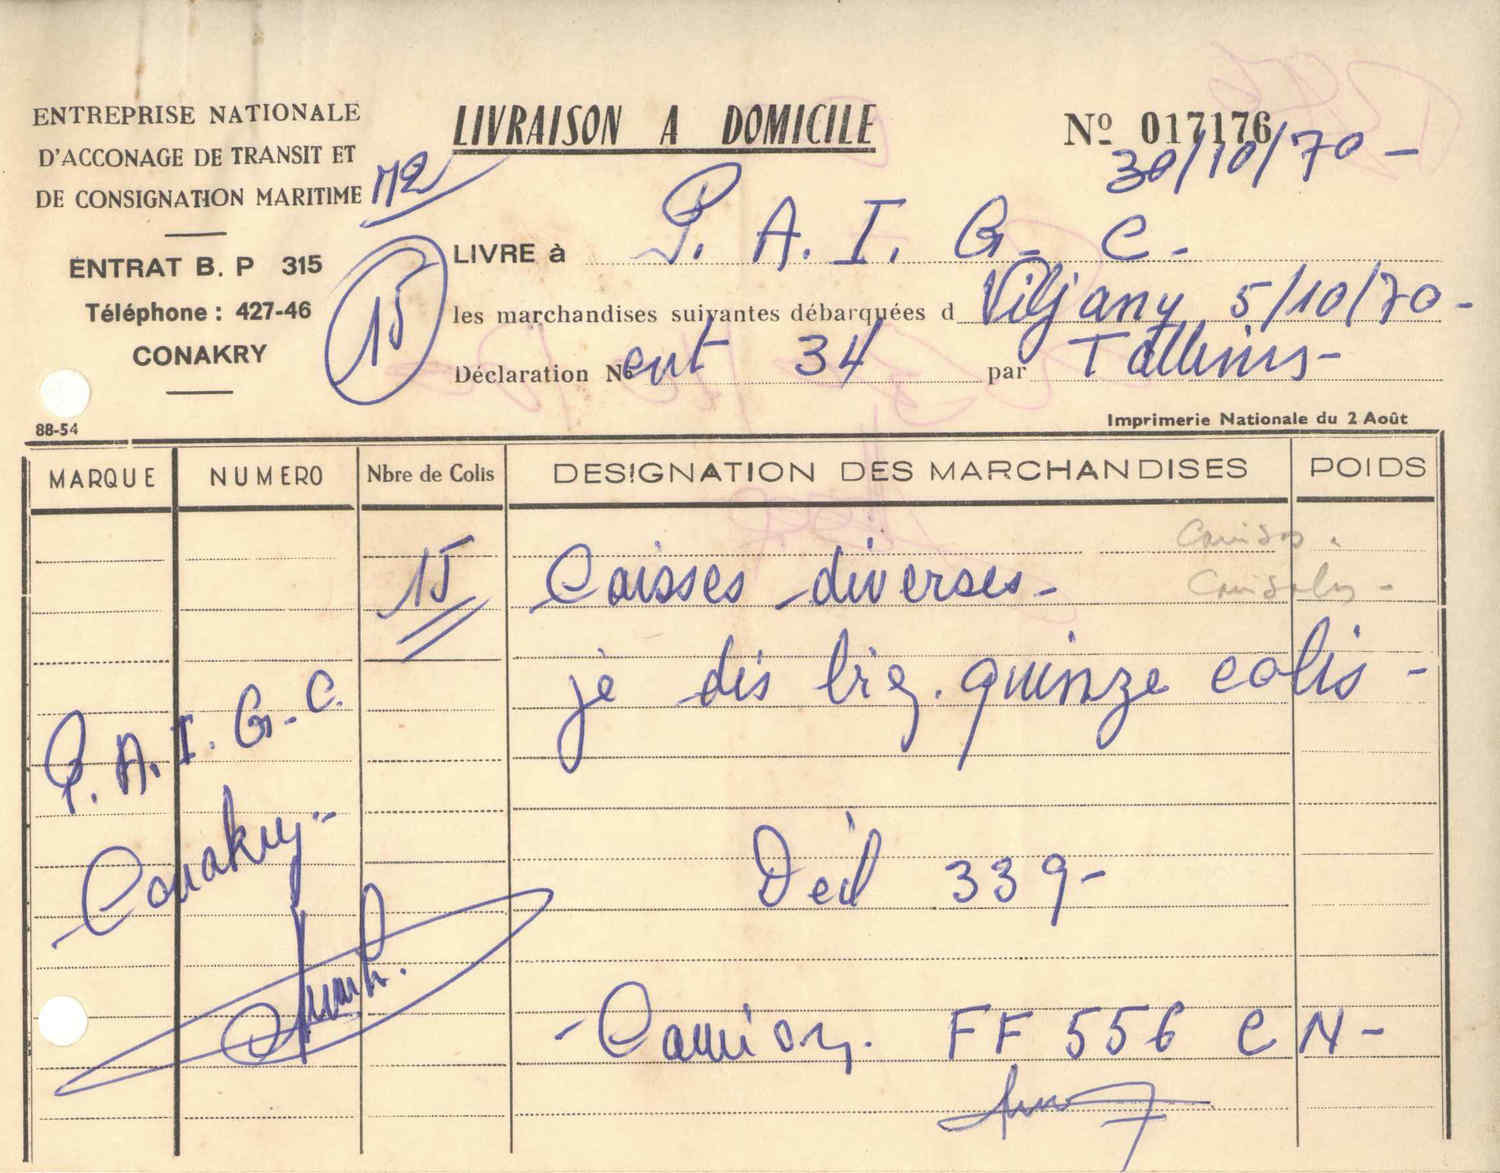 ENTREPRISE NATIONALE
D'ACCONAGE DE TRANSIT ET
DE CONSIGNATION MARITIME
ENTRAT B. P 315
Téléphone : 427-46
CONAKRY
88-54
LIVRAISON A DOMICILE
Nº 017176
30/10/70 -
15
LIVRE à P. A. I. G. C. -
les marchandises suivantes débarquées d Viljany 5/10/70 -
Déclaration Nº ent 34 par Tallinns -
Imprimerie Nationale du 2 Août
MARQUE NUMERO Nbre de Colis DESIGNATION DES MARCHANDISES POIDS
15 Caisses diverses -
je dis quinze colis -
P. A. I. G. C.
Conakry -
339 -
- Camion. FF 556 CN -